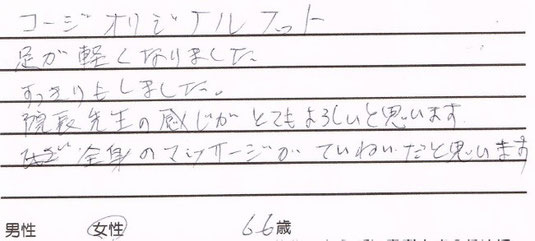 コージオリジナルフット
足が軽くなりました。
すっきりもしました。
院長先生の感じがとてもよろしいと思います
全身のマッサージがていねいだと思います
男性 女性 66歳